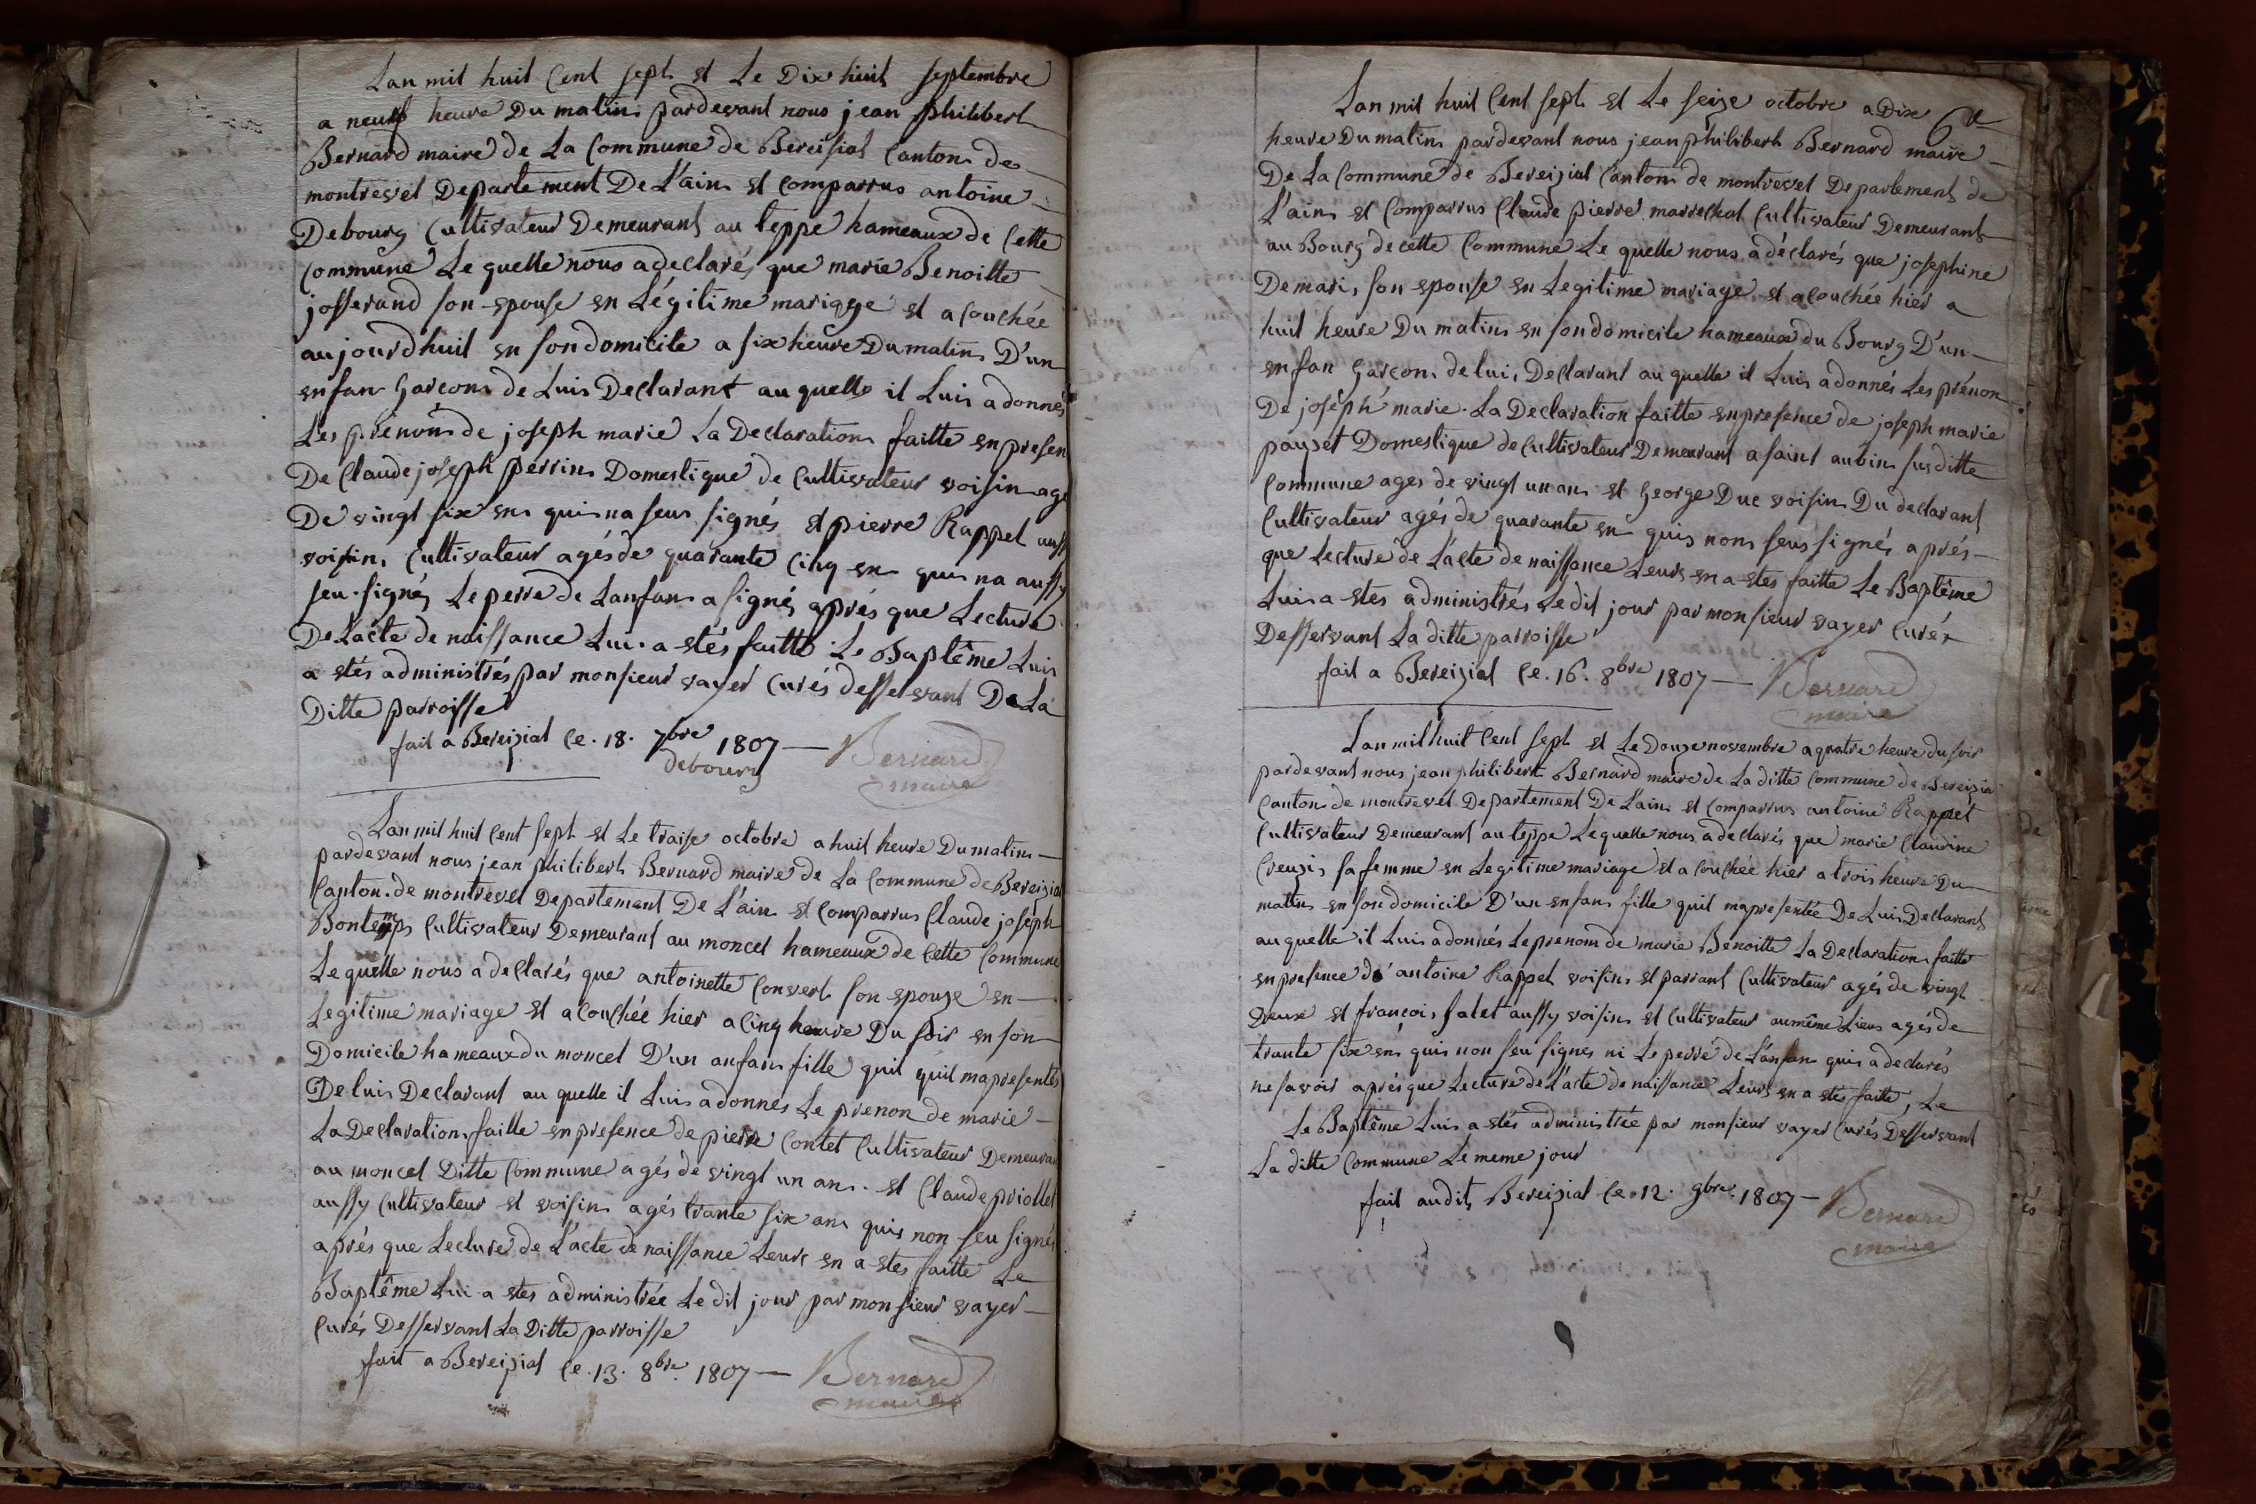 Lan mil huit Cent sept et Le Dix huit septembre
a neuf heure Du matin pardevant nous jean philibert
Bernard maire de La Commune de Bereisiat Canton de
montrevel Departement De L'ain et Comparrus antoine
Debourg Cultivateur Demeurant au teppe hameaux de Cette
Commune Le quelle nous a declarés que marie Benoitte
josserand son epouse en Légitime mariage et a Couchée
aujourdhuit en son domicile a six heure Du matin D'un
enfan Garcon de Luis Declarant au quelle il Luis a donnés
Les prénom de joseph marie La Declaration faitte en presen
De Claude joseph perrin Domestique de Cultivateur voisin agé
De vingt six en quis na seus signés et pierre Rappet aussy
voisin Cultivateur agés de quarante Cinq en quis na aussy
seu signés Le perre de Lanfan a signés aprés que Lecture
De Lacte de naissance Luis a etés faitte Le Baptême Luis
a etés administrés par monsieur vayer Curés desservant De La
Ditte parroisse
fait a Bereiziat Ce . 18 . 7bre 1807 — Bernard
debourg maire
Lan mil huit Cent sept et Le traise octobre a huit heure Du matin —
pardevant nous jean philibert Bernard maire de La Commune de Bereizia
Canton de montrevel Departemant De L'ain et Comparrus Claude joseph
Bontemps Cultivateur Demeurant au moncel hameaux de Cette Commune
Le quelle nous a declarés que antoinette Convert son epouze en —
Legitime mariage et a Couchée hier a Cinq heure Du soir en son
Domicile hameaux du moncel D'un anfan fille quil quil ma presentés
De luis Declarant au quelle il Luis a donnés Le prenon de marie —
La Declaration faitte en presence de pierre Contet Cultivateur Demeuran
au moncel Ditte Commune agés de vingt un an . et Claude priollet
aussy Cultivateur et voisin agés trante six an quis non seu signés
aprés que Lecture de L'acte de naissance Leurs en a etes faitte Le
Baptême Lui a etes administrée Le dit jour par monsieur vayer —
Curés Desservant La Ditte parroisse
fait a Bereiziat Ce . 13 . 8bre . 1807 — Bernard
maire
Lan mil huit Cent sept et Le seize octobre a Dix
heure Du matin pardevant nous jean philibert Bernard maire —
De La Commune de Bereiziat Canton de montrevel Departement de
L'ain et Comparrus Claude pierre marrechal Cultivateur Demeurant
au Bourg de cette Commune Le quelle nous a déclarés que josephine
Demari, son epouse en Legitime mariage et a Couchée hier a
huit heure Du matin en son domicile hameaux du Bourg D'un —
enfan Garcon de lui, Declarant au quelle il Luis a donnés Les prénon
De joseph marie . La Declaration faitte en presence de joseph marie
pauset Domestique de Cultivateur Demeurant a saint aubin susditte
Commune ages de vingt un an et George Duc voisin Du declarant
Cultivateur agés de quarante en quis non seus signés aprés —
que Lecture de L'acte de naissance Leurs en a etes faitte Le Baptême
Luis a etes administrés Le dit jour par monsieur vayer Curés
Desservant La ditte parroisse
fait a Bereiziat Ce . 16 . 8bre 1807 — Bernard
maire
Lan mil huit Cent sept et Le Douze novembre a quatre heure du soir
pardevant nous jean philibert Bernard maire de La ditte Commune de Bereizia
Canton de montrevel Departement De L'ain et Comparrus antoine Rappet
Cultivateur Demeurant au teppe Le quelle nous a declarés que marie Claudine
Creuzis sa femme en Legitime mariage et a Couchée hier a trois heure Du —
mattin en son domicile D'un enfan fille quil ma presentée De Luis Declarant
au quelle il Luis a donnés Le prenom de marie Benoitte La Declaration faitte
en presence de antoine Rappet voisin et parrant Cultivateur agés de vingt
Deux et francois salet aussy voisin et Cultivateur au même Lieus agés de
trante six en quis non seu signes ni Le perre de L'anfan quis a declarés
ne savoir aprés que Lecture de L'acte de naissance Leurs en a etés faitte, Le
Le Baptême Luis a etés administrée par monsieur vayer Curés Desservant
La ditte Commune Le meme jour
fait au dit Bereiziat Ce . 12 . 9bre . 1807 — Bernard
maire